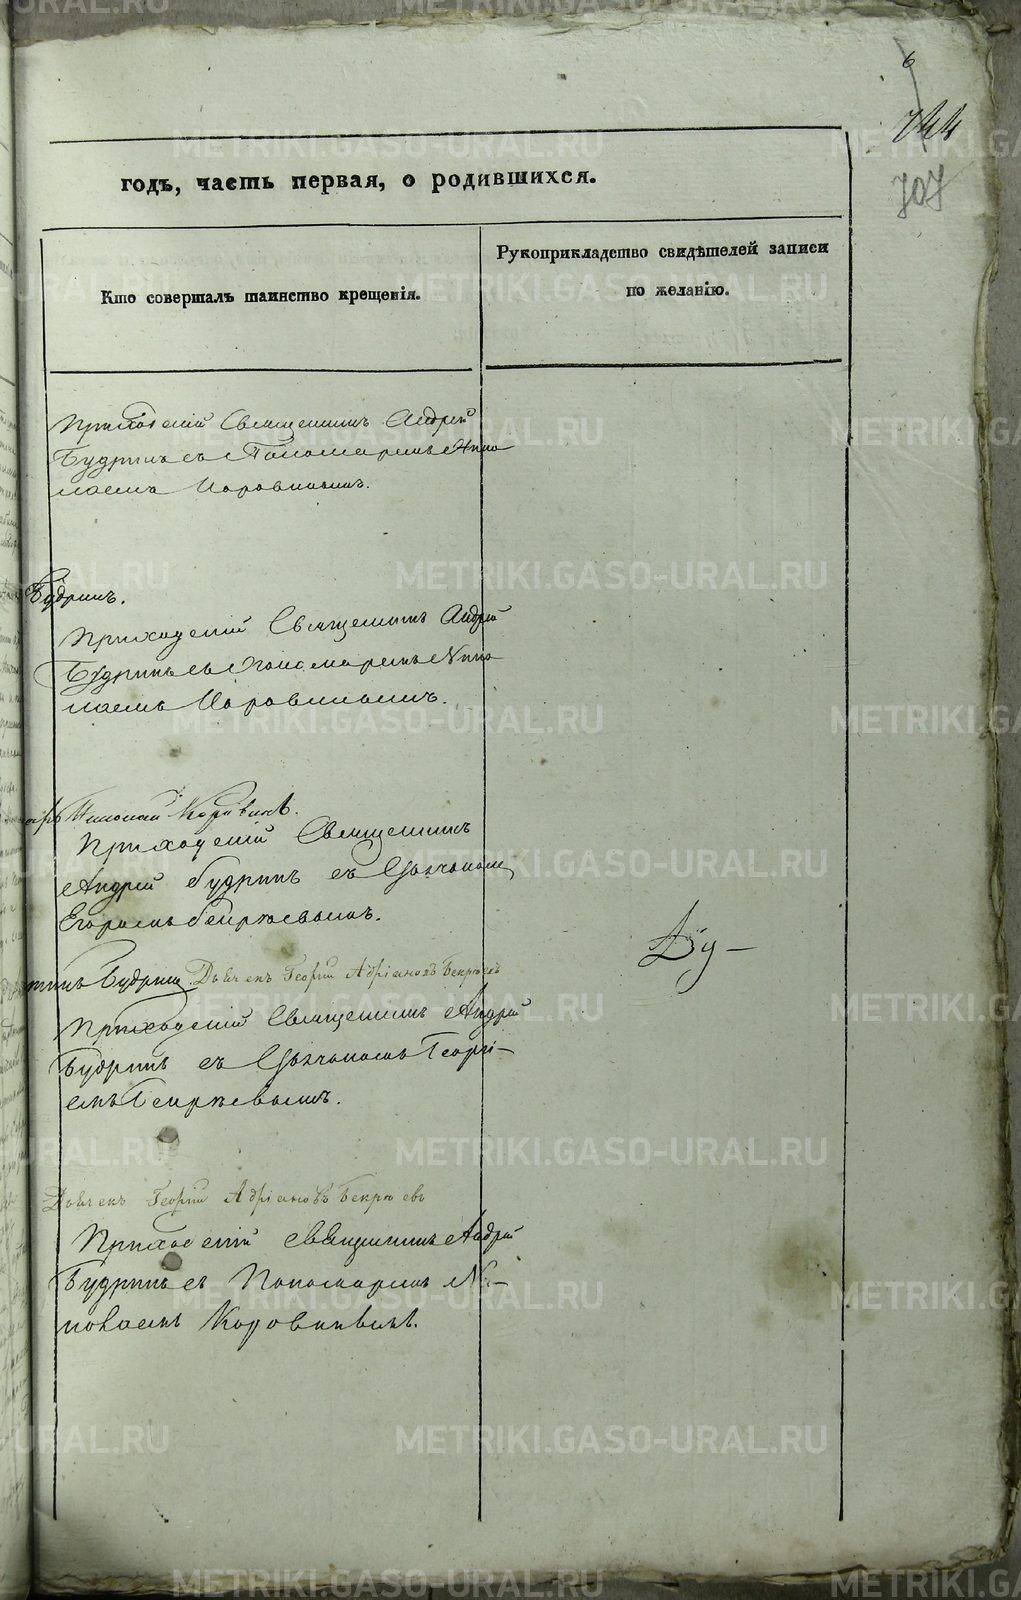 6
744
707
годъ, часть первая, о родившихся.
Кто совершалъ таинство крещенія.
Рукоприкладство свидѣтелей записи
по желанію.
Приходскій Священникъ Андрей
Будринъ съ Пономаремъ Нико
лаемъ Коровинымъ.
Будринъ.
Приходскій Священникъ Андрей
Будринъ съ Пономаремъ Нико
лаемъ Коровинымъ.
Николай Коровинъ.
Приходскій Священникъ
Андрей Будринъ съ Дьячкомъ
Егоромъ Бекряевымъ.
Будринъ Дьячекъ Георгій Адріановъ Бекряевъ
Приходскій Священникъ Андрей
Будринъ съ Дьячкомъ Георгі-
емъ Бекряевымъ.
Ву-
Дьячекъ Георгій Адріановъ Бекряевъ
Приходскій Священникъ Андрей
Будринъ съ Пономаремъ Ни-
колаемъ Коровинымъ.
METRIKI.GASO-URAL.RU